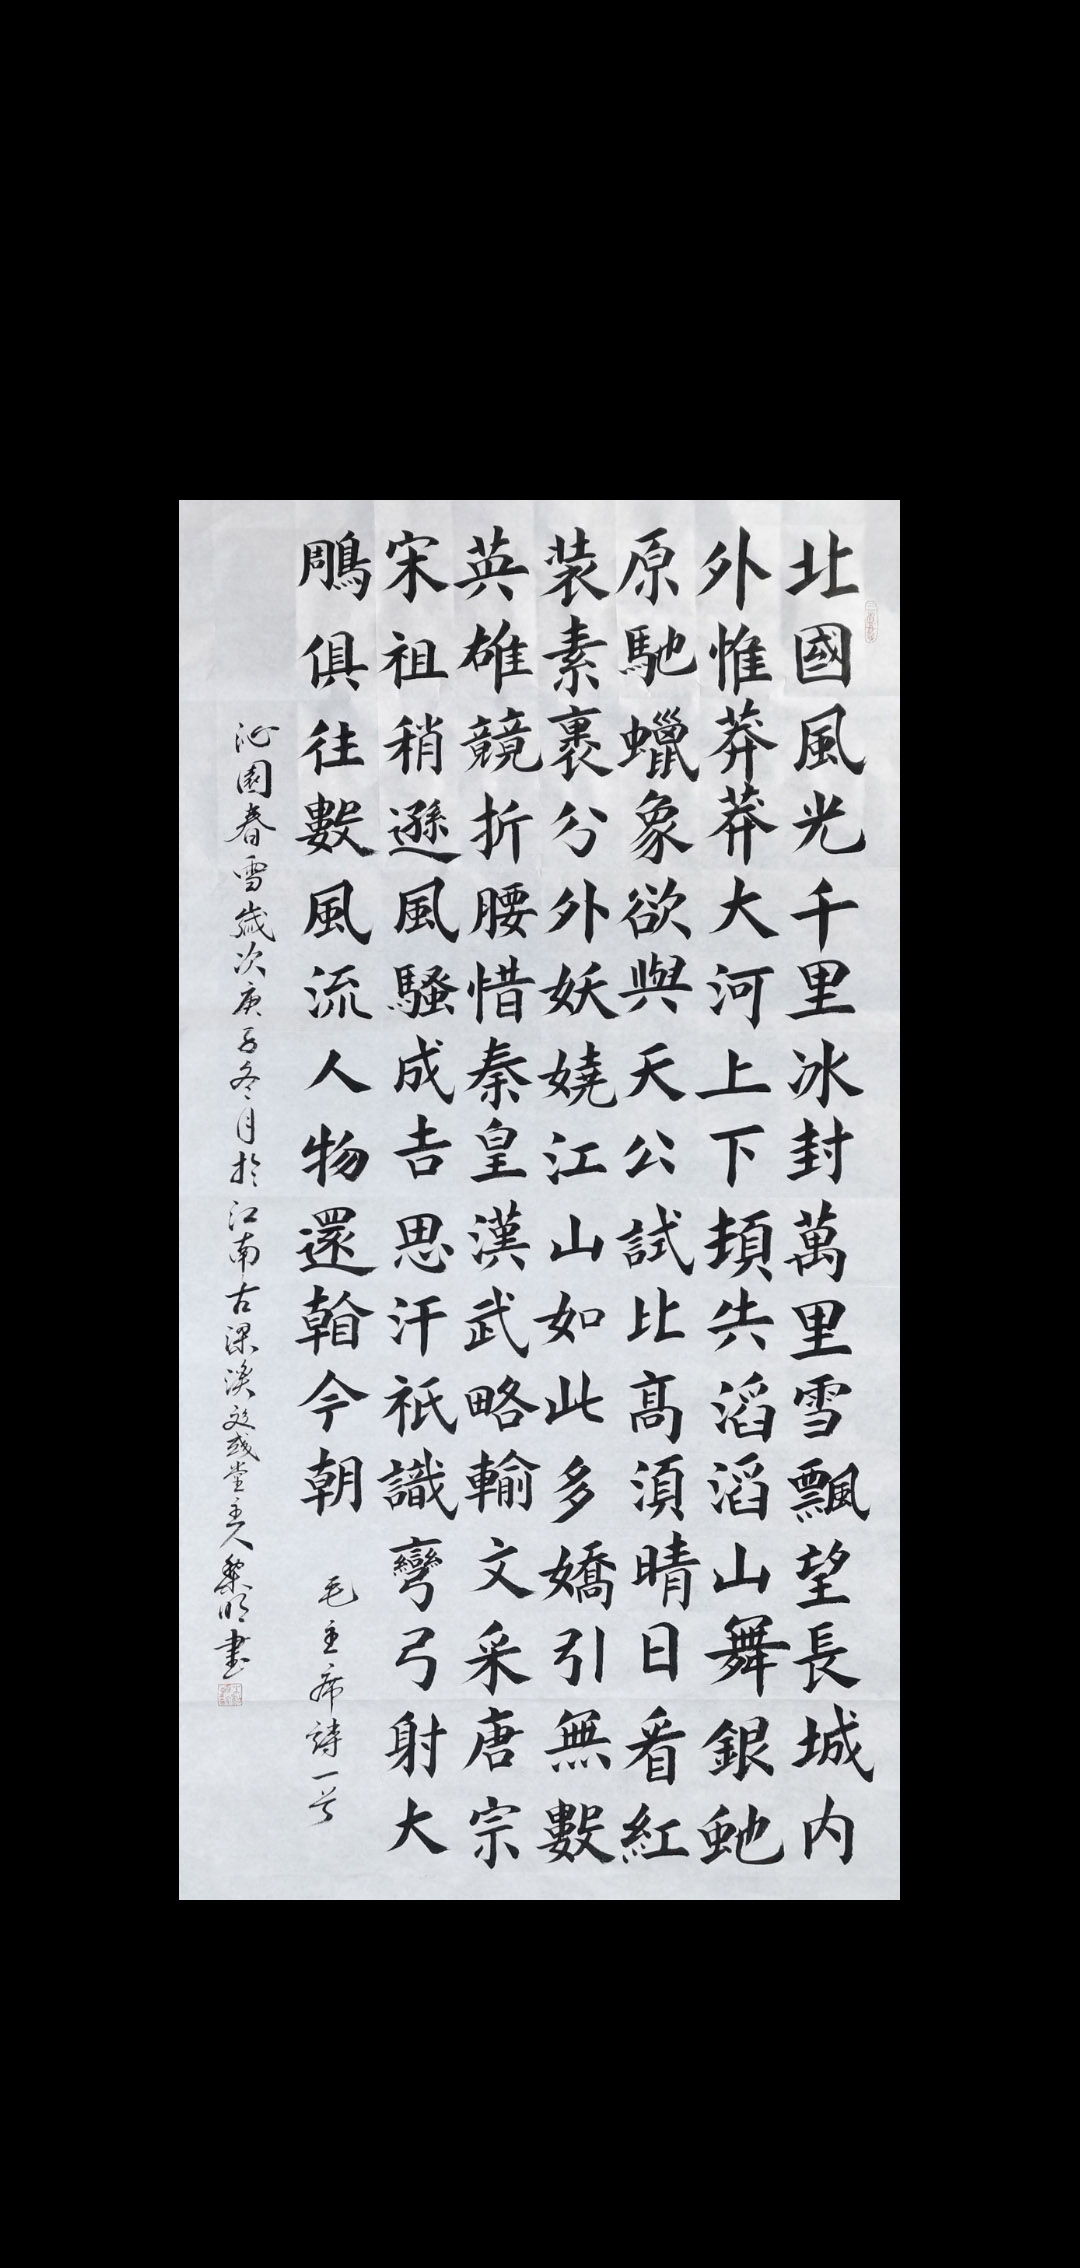 北國風光千里冰封萬里雪飄望長城内
外惟莽莽大河上下頓失滔滔山舞銀虵
原馳蠟象欲與天公試比高須晴日看紅
装素裹分外妖嬈江山如此多嬌引無數
英雄競折腰惜秦皇漢武略輸文采唐宗
宋祖稍遜風騷成吉思汗祇識彎弓射大
鵰俱往數風流人物還看今朝
毛主席詩一首
沁園春雪歲次庚子冬月於江南古梁溪 堂主人黎明書